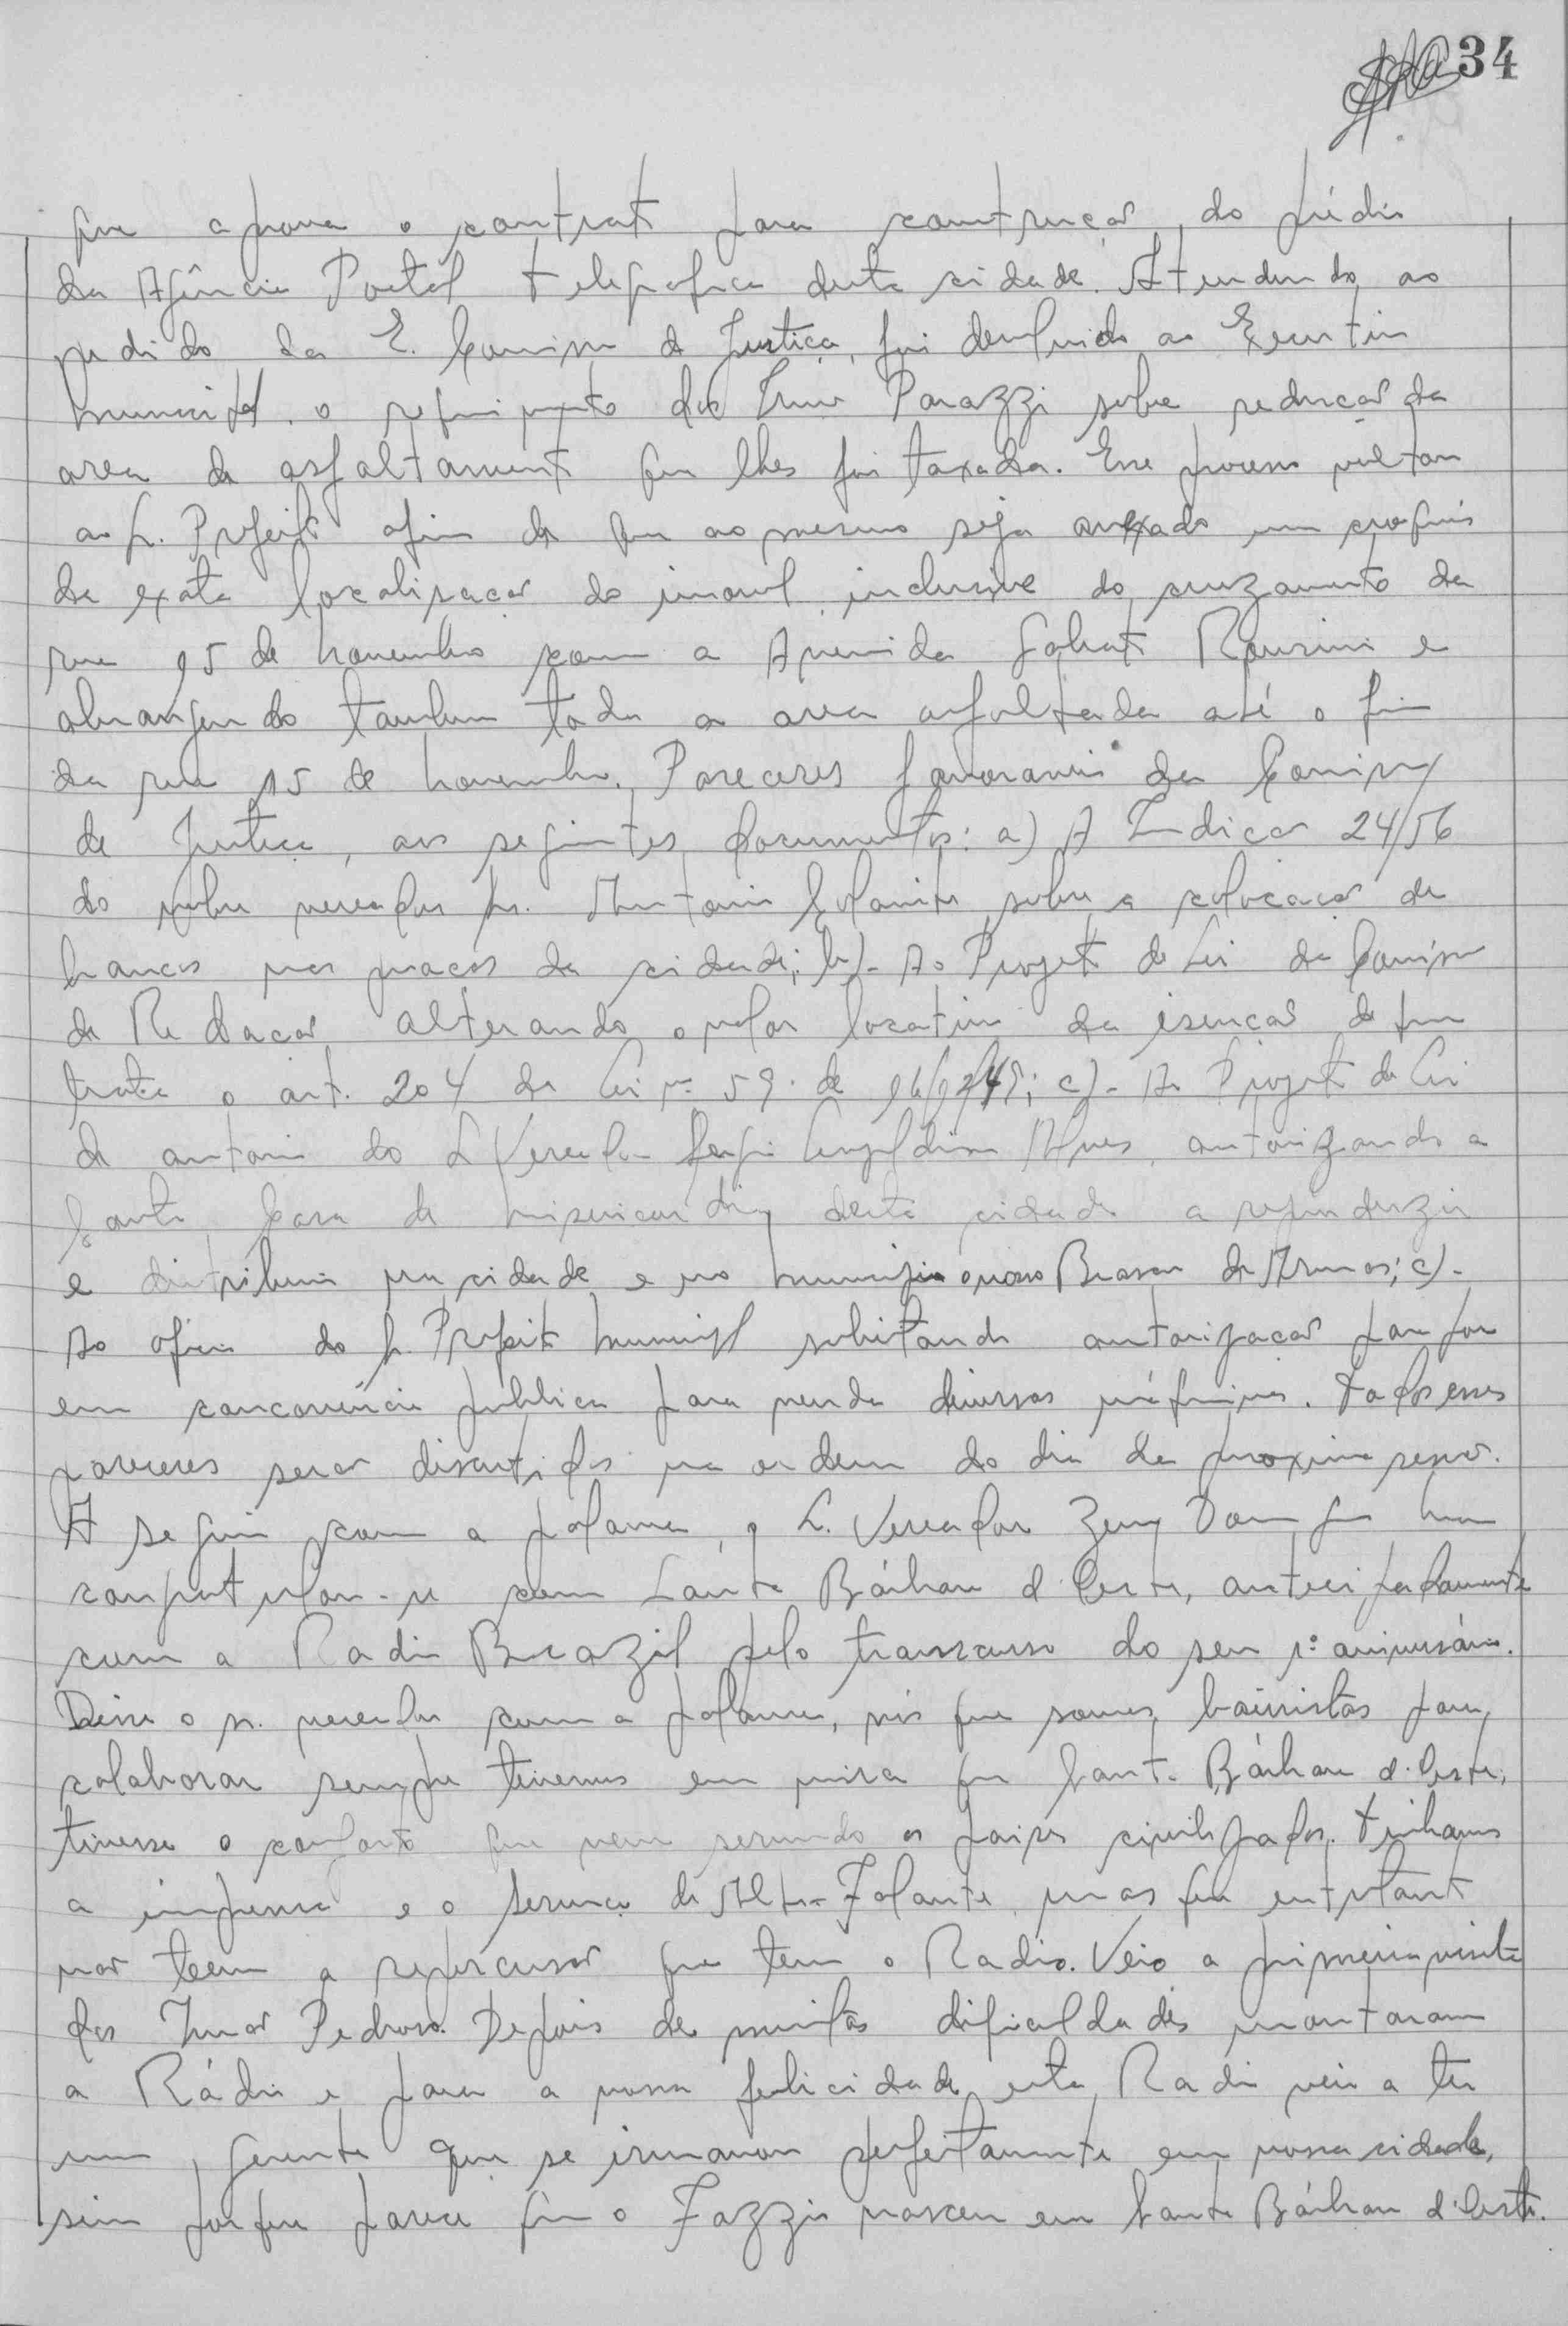 34
que aprova o contrato para construção do prédio
da Agência Postal Telegrafica desta cidade. Atendendo ao
pedido da E. Comissão de Justiça, foi devolvido ao Executivo
Municipal o requerimento dos Irmãos Parazzi sobre redução da
area de asfaltamento que lhes foi taxada. Esse processo voltou
ao Sr. Prefeito afim de que ao mesmo seja anexado um croquis
da exata localisação do imovel inclusive do cruzamento da
rua 15 de Novembro com a Avenida Sabato Ronsini e
abrangendo tambem toda a area asfaltada até o fim
da rua 15 de Novembro. Pareceres favoraveis da Comissão
de Justiça, aos seguintes documentos: a) A Indicação 24/56
do nobre vereador Sr. Antonio sobre a colocação de
bancos nas praças da cidade; b)- Ao Projeto de Lei da Comissão
de Redação alterando o valor locativo da isenção de que
trata o art. 204 da Lei nº 59 de; c)- Ao Projeto de Lei
de autoria do S. Vereador Sergio Alves, autorizando a
Santa Casa de Misericordia desta cidade a reproduzir
e distribuir na cidade e no municipio o nosso Brasão de Armas; c)-
Ao oficio do Sr. Prefeito Municipal solicitando autorização para por
em concorrência pública para venda diversas máquinas. Todos esses
pareceres serão discutidos na ordem do dia da proxima sessão.
A seguir com a palavra, o S. Vereador Zeny Domingues
congratulou-se com Santa Bárbara d'Oeste, antecipadamente
com a Radio Brazil pelo transcurso do seu 1º aniversário.
Disse o n. vereador com a palavra, nós que somos bairristas para
colaborar sempre tivemos em mira que Santa Bárbara d'Oeste,
tivesse o conforto que vem servindo os paises civilizados. Tinhamos
a imprensa e o serviço de Alto-Falante, mas que entretanto
não teem a repercusão que tem o Radio. Veio a primeira visita
dos Irmãos Pedroso. Depois de muitas dificuldades montaram
a Rádio e para a nossa felicidade esta Radio veio a ter
um gerente que se irmanou perfeitamente em nossa cidade,
sim porque parece que o Fazzio nasceu em Santa Bárbara d'Oeste.